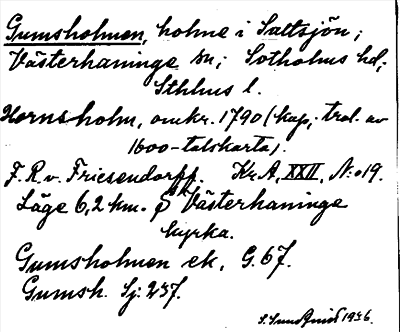 Gumsholmen, holme i Saltsjön;
Västerhaninge sn; Sotholms hd;
Sthlms l.
Hornsholm, omkr. 1790 (kop; trol. av
1600-talskarta).
F. R. v. Friesendorff. Kr. A, XXII, N:o 19.
Läge 6,2 km. Ö Västerhaninge
kyrka.
Gumsholmen ek. G. 67.
Gumsh. Sj: 237.
S. Sundquist 1936.